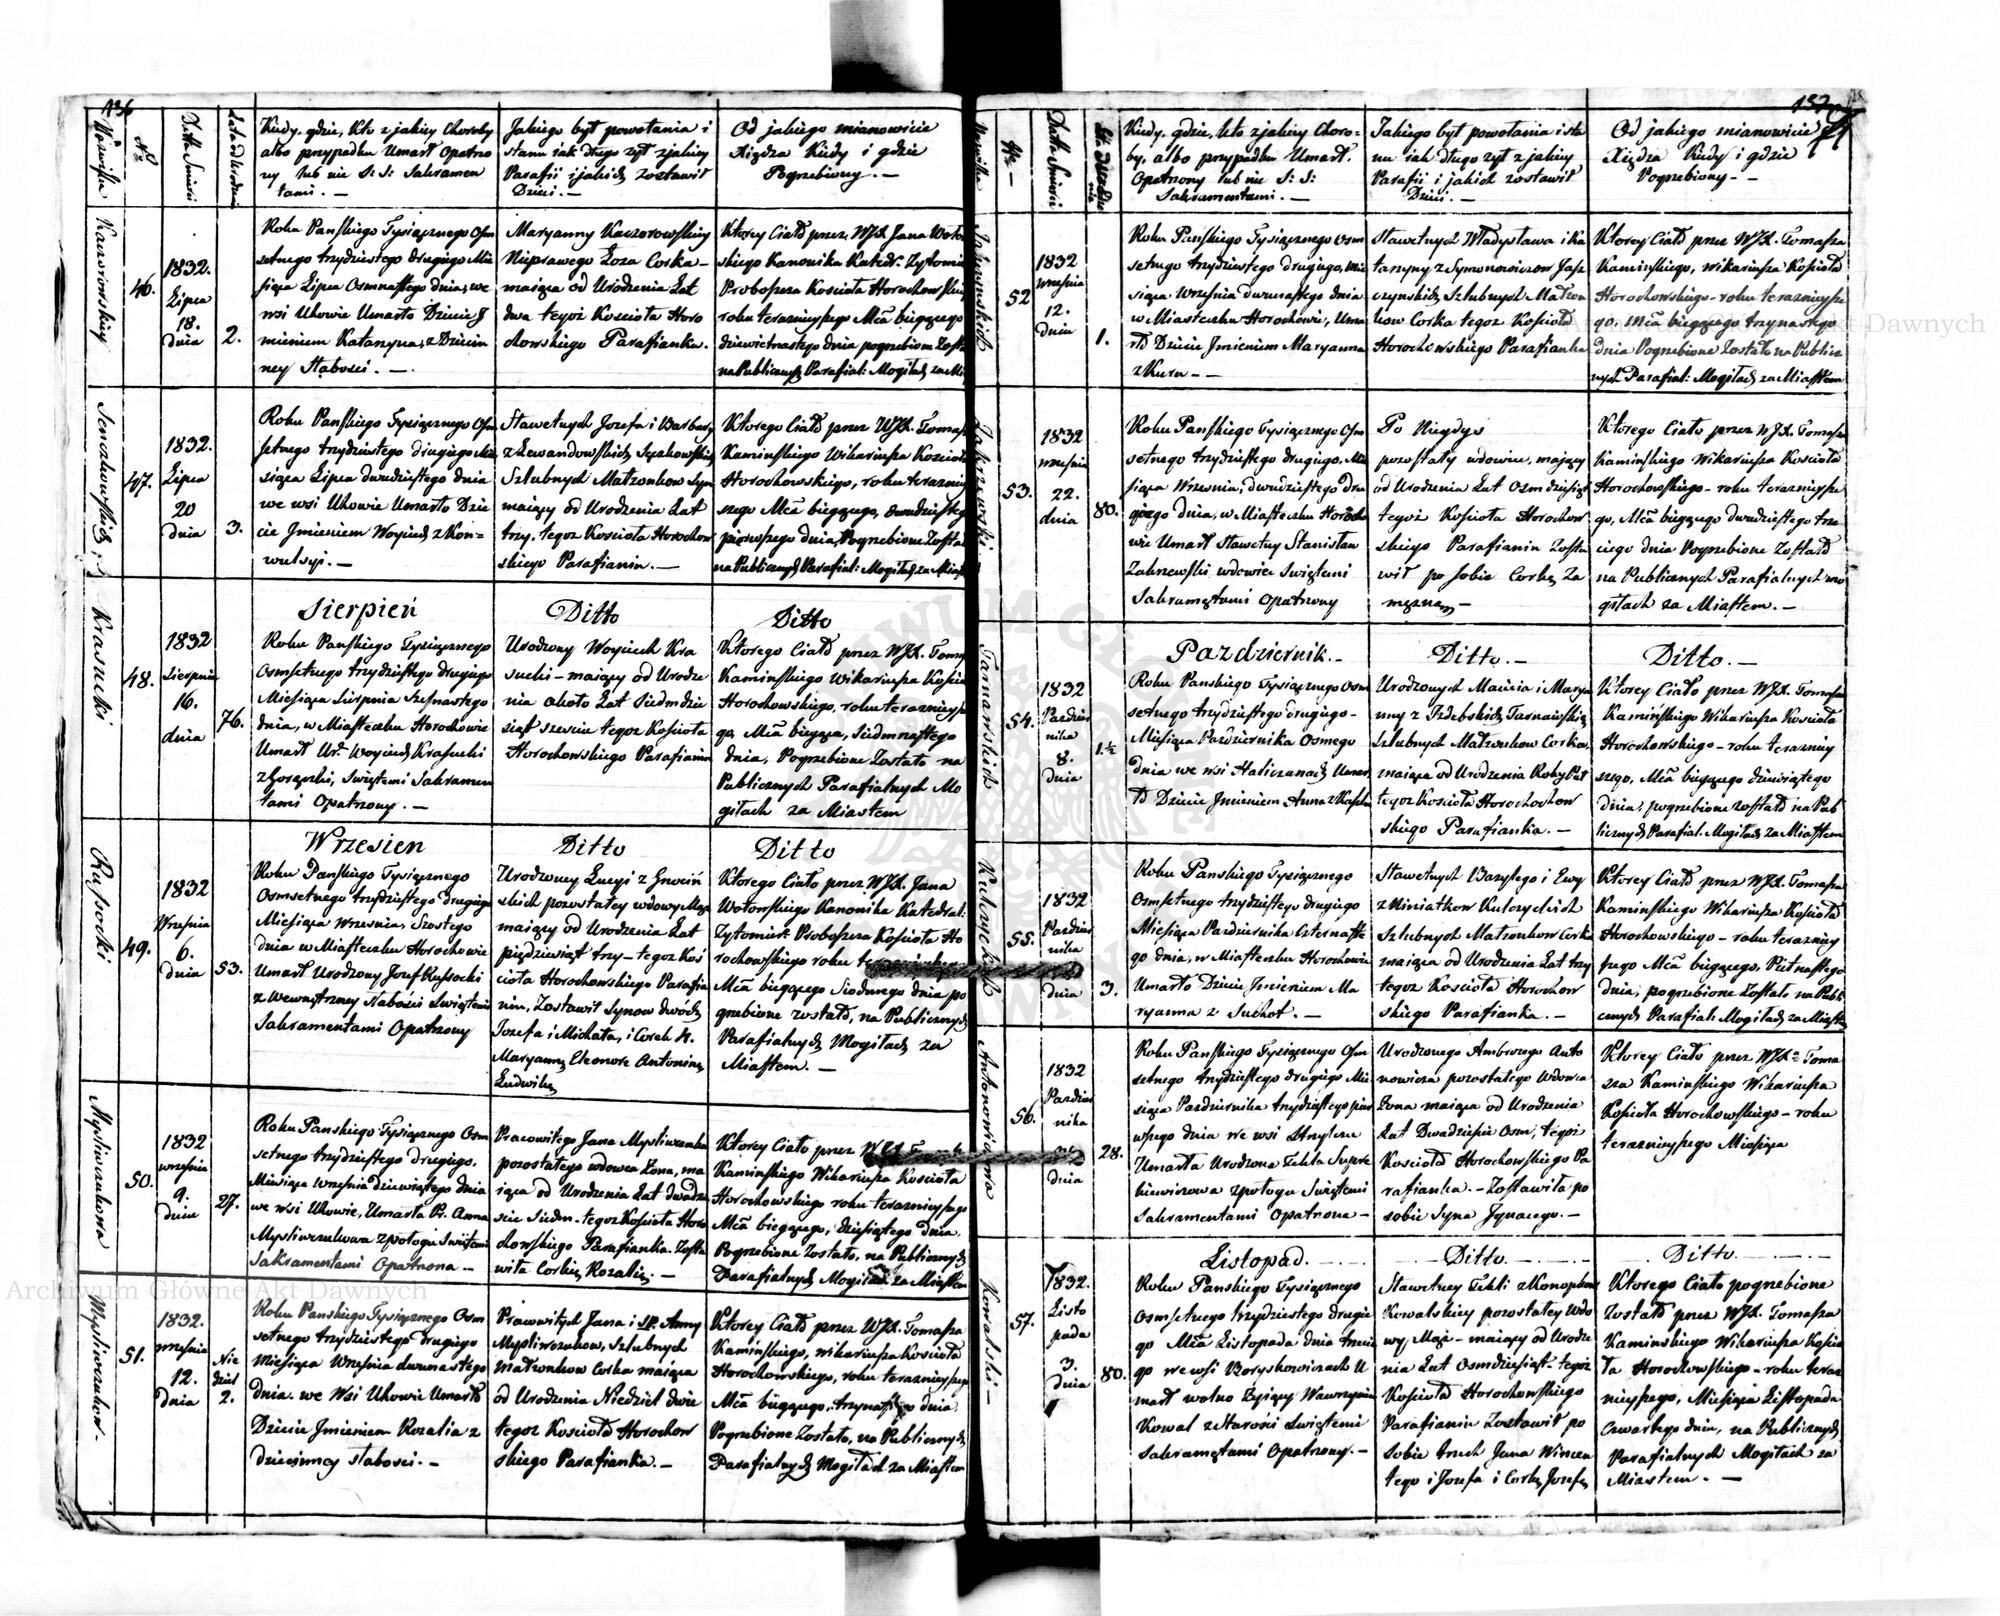 136
Nazwiska
No
Datta Smierci
Lata od Urodzenia
Kiedy, gdzie, Kto z jakiey Choroby
albo przypadku Umarł Opatrzo
ny lub nie S: S: Sakramen
tami. —
Jakiego był powołania i
stanu iak długo żył z jakiey
Parafii i jakich zostawił
Dzieci. —
Od jakiego mianowicie
Xiędza Kiedy i gdzie
Pogrzebiony. —
46.
1832.
Lipca
18.
dnia
2.
Roku Pańskiego Tysiącznego Osm
setnego trzydziestego drugiego Mie
siąca Lipca Osmnastego dnia, we
wsi Uhowie Umarło Dziecie J
mieniem Katarzyna, z Dziecin
ney Słabości. —
Maryanny Kaczorowskiey
Nieprawego Łoza Corka —
maiąca od Urodzenia Lat
dwa tegoż Kościoła Horo
chowskiego Parafianka.
Ktorey Ciało przez, WJX. Jana Woto
skiego Kanonika Katedr. Zytomir
Proboszcza Kościoła Horochowskie
roku teraznieyszego Mca bieżącego
dziewietnastego dnia pogrzebione Zosta
na Publicznych Parafial: Mogiłach za Mia
47.
1832.
Lipca
20
dnia
3.
Roku Pańskiego Tysiącznego Osm
setnego trzydziestego drugiego Mie
siąca Lipca dwudziestego dnia
we wsi Uhowie Umarło Dzie
cie Jmieniem Woyciech z Kon=
wulsyi. —
Sławetnych Jozefa i Barbary
z Lewandowskich Sęczkowskich
Szlubnych Małzonkow Syn
maiący od Urodzenia Lat
trzy, tegoz Kościoła Horochow
skiego Parafianin. —
Ktorego Ciało przez WJX. Tomasz
Kaminskiego Wikariusza Kościoła
Horochowskiego, roku teraznie
szego Mca bieżącego, dwudziestego
pierwszego dnia, Pogrzebione Zostało
na Publicznych Parafial: Mogiłach za Miast
Krasucki
48.
1832
Sierpnia
16.
dnia
76.
Sierpień
Roku Pańskiego Tysiącznego
Osmsetnego trzydziestego drugiego
Miesiąca Sierpnia Szesnastego
dnia, w Miasteczku Horochowie
Umarł Ur. Woyciech Krasucki
z Gorączki, Swiętemi Sakramen
tami Opatrzony. —
Ditto
Urodzony Woyciech Kra
sucki — maiący od Urodze
nia około Lat Siedmdzie
siąt szescie tegoz Kościoła
Horochowskiego Parafianin
Ditto
Ktorego Ciało przez WJX. Toma
Kaminskiego Wikariusza Kościo
Horochowskiego, roku teraznieysze
go, Mca bieżąca, Siedmnastego
dnia, Pogrzebione Zostało na
Publicznych Parafialnych Mo
giłach za Miastem
Russocki
49.
1832
Wrzesnia
6.
dnia
53.
Wrzesien
Roku Pańskiego Tysiącznego
Osmsetnego trzydziestego drugiego
Miesiąca Wrzesnia, Szostego
dnia w Miasteczku Horochowie
Umarł Urodzony Jozef Russocki
z Wewnętrzney Słabości Swiętemi
Sakramentami Opatrzony
Ditto
Urodzoney Łucyi z Gnoiń
skich pozostałey wdowy Mąż
maiący od Urodzenia Lat
pięćdziesiąt trzy — tegoz Koś
cioła Horochowskiego Parafia
nin, Zostawił Synow dwóch
Jozefa i Michała, i Corek 4.
Maryannę Eleonorę Antoninę
Ludwikę
Ditto
Ktorego Ciało przez WJX. Jana
Wotowskiego Kanonika Katedral:
Zytomirs: Proboszcza Kościoła Ho
rochowskiego roku
Mca bieżącego Siodmego dnia po
grzebione zostało, na Publicznych
Parafialnych Mogiłach za
Miastem. —
Mysliwczukowa
50.
1832
wrzesnia
9.
dnia
27.
Roku Panskiego Tysiącznego Osm
setnego trzydziestego drugiego.
Miesiąca Wrzesnia dziewiątego dnia
we wsi Uhowie, Umarła Pr. Anna
Mysliwczukowa z połogu Swiętemi
Sakramentami Opatrzona —
Pracowitego Jana Mysliwczuka
pozostałego wdowca Zona, ma
iąca od Urodzenia Lat dwadzie
scia Siedm. tegoz Kościoła Horo
chowskiego Parafianka. Zosta
wiła Corkę Rozalię. —
Ktorey Ciało przez WJX.
Kaminskiego Wikariusza Kościoła
Horochowskiego roku teraznieyszego
Mca bieżącego, dziesiątego dnia
Pogrzebione Zostało, na Publicznych
Parafialnych Mogiłach za Miastem
Mysliwczukow. —
51.
1832.
wrzesnia
12.
dnia
Nie
dziel
2.
Roku Panskiego Tysiącznego Osm
setnego trzydziestego drugiego
Miesiąca Wrzesnia dwunastego
dnia. we Wsi Uhowie Umarło
Dziecie Jmieniem Rozalia z
dziecinney słabości. —
Pracowitych Jana i SP. Anny
Mysliwczukow, Szlubnych
Małzonkow Corka maiąca
od Urodzenia Niedziel dwie
tegoz Kościoła Horochow
skiego Parafianka. —
Ktorey Ciało przez WJX. Tomasza
Kamińskiego, Wikariusza Kościoła
Horochowskiego, roku teraznieyszego
Mca bieżącego, trzynastego dnia
Pogrzebione Zostało, na Publicznych
Parafialnych Mogiłach za Miastem
137
Nazwiska
No —
Datta Smierci
Kiedy, gdzie, kto z jakiey Choro=
by, albo przypadku Umarł.
Opatrzony lub nie S: S:
Sakramentami. —
Jakiego był powołania i sta
nu iak długo żył z jakiey
Parafii i jakich zostawił
Dzieci. —
Od jakiego mianowicie
Xiędza Kiedy i gdzie
Pogrzebiony — —
52
1832
wrzesnia
12.
dnia
1.
Roku Pańskiego Tysiącznego osm
setnego trzydziestego drugiego, Mie
siąca Wrzesnia dwunastego dnia
w Miasteczku Horochowie, Uma
rło Dziecie Jmieniem Maryanna
z Kuru — —
Sławetnych Władysława i Ka
tarzyny z Symonowiczow Jasz
czynskich Szlubnych Małzon
kow Corka tegoz Kościoła
Horochowskiego Parafianka
Ktorey Ciało przez WJX. Tomasza
Kaminskiego, wikariusza Kościoła
Horochowskiego — roku teraznieysze
go, Mca bieżącego trzynastego
dnia Pogrzebione Zostało na Publicz
nych Parafial: Mogiłach za Miastem
Zakrzewski
53.
1832
wrzesnia
22.
dnia
80.
Roku Pańskiego Tysiącznego Osm
setnego trzydziestego drugiego, Mie
siąca Wrzesnia, dwudziestego dru
giego dnia, w Miasteczku Horocho
wie Umarł Sławetny Stanisław
Zakrzewski wdowiec Swiętemi
Sakramętami Opatrzony
Po Niegdys
pozostały wdowiec, maiący
od Urodzenia Lat Osmdziesiąt
tegoz Kościoła Horochow
skiego Parafianin Zosta
wił po sobie Corkę Za
mężną —
Ktorego Ciało przez WJX. Tomasza
Kaminskiego Wikariusza Kościoła
Horochowskiego — roku teraznieysze
go, Mca bieżącego dwudziestego trze
ciego dnia Pogrzebione Zostało
na Publicznych Parafialnych mo
giłach za Miastem. —
Tarnawskich
54.
1832
Pazdzier
nika
8.
dnia
1.½
Pazdziernik. —
Roku Pańskiego Tysiącznego Osm
setnego trzydziestego drugiego —
Miesiąca Pazdziernika Osmego
dnia we wsi Haliczanach Umar
ło Dziecie Jmieniem Anna z Kaszlu
Ditto. —
Urodzonych Macieia i Marya
nny z Izdebskich Tarnawskich
Szlubnych Małzonkow Corka,
maiąca od Urodzenia Roku Puł
tegoz Kościoła Horochochow
skiego Parafianka. —
Ditto. —
Ktorey Ciało przez WJX. Tomasza
Kamińskiego Wikariusza Kościoła
Horochowskiego — roku terazniey
szego, Mca bieżącego dziewiątego
dnia, pogrzebione zostało na Pub
licznych Parafial. Mogiłach za Miastem
Kulczyckich
55.
1832
Pazdzier
nika
dnia
3.
Roku Pańskiego Tysiącznego
Osmsetnego trzydziestego drugiego
Miesiąca Pazdziernika Czternaste
go dnia, w Miasteczku Horochowie
Umarło Dziecie Jmieniem Ma
ryanna z Suchot. —
Sławetnych Bazylego i Ewy
z Winiatkow Kulczyckich
Szlubnych Małzonkow Corka
maiąca od Urodzenia Lat trzy
tegoz Kościoła Horochow
skiego Parafianka. —
Ktorey Ciało przez WJX. Tomasza
Kaminskiego Wikariusza Kościoła
Horochowskiego — roku terazniey
szego Mca bieżącego, Pietnastego
dnia, pogrzebione Zostało na Publi
cznych Parafial: Mogiłach za Miastem
Antonowiczowa
56.
1832
Pazdzier
nika
dnia
28.
Roku Pańskiego Tysiącznego Osm
setnego trzydziestego drugiego Mie
siąca Pazdziernika trzydziestego pier
wszego dnia we wsi
Umarła Urodzona Tekla
z połogu Swiętemi
Sakramentami Opatrzona —
Urodzonego Ambrozego Anto
nowicza pozostałego Wdowca
Zona maiąca od Urodzenia
Lat Dwadziescia Osm, tegoz
Kościoła Horochowskiego Pa
rafianka. — Zostawiła po
sobie Syna Jgnacego. —
Ktorey Ciało przez WJX. Toma
sza Kaminskiego Wikariusza
Kościoła Horochowskiego — roku
teraznieyszego Miesiąca
Kowalski —
57.
1832.
Listo
pada
3.
dnia
80.
Listopad.
Roku Pańskiego Tysiącznego
Osmsetnego trzydziestego drugie
go Mca Listopada dnia trzecie
go we wsi Boryskowiczach U
marł wolno Zyiący Wawrzyniec
Kowal z starości Swiętemi
Sakramętami Opatrzony. —
Ditto. —
Sławetney Tekli z Konopkow
Kowalskiey pozostałey Wdo
wy Mąż — maiący od Urodze
nia Lat Osmdziesiąt. tegoz
Kościoła Horochowskiego
Parafianin Zostawił po
Sobie trzech Jana Wincen
tego i Jozefa i Corkę Jozefę
Ditto. —
Ktorego Ciało pogrzebione
Zostało przez WJX. Tomasza
Kaminskiego Wikariusza Kościo
ła Horochowskiego — roku teraz
nieyszego, Miesiąca Listopada
Czwartego dnia, na Publicznych
Parafialnych Mogiłach za
Miastem. —
Archiwum Główne Akt Dawnych